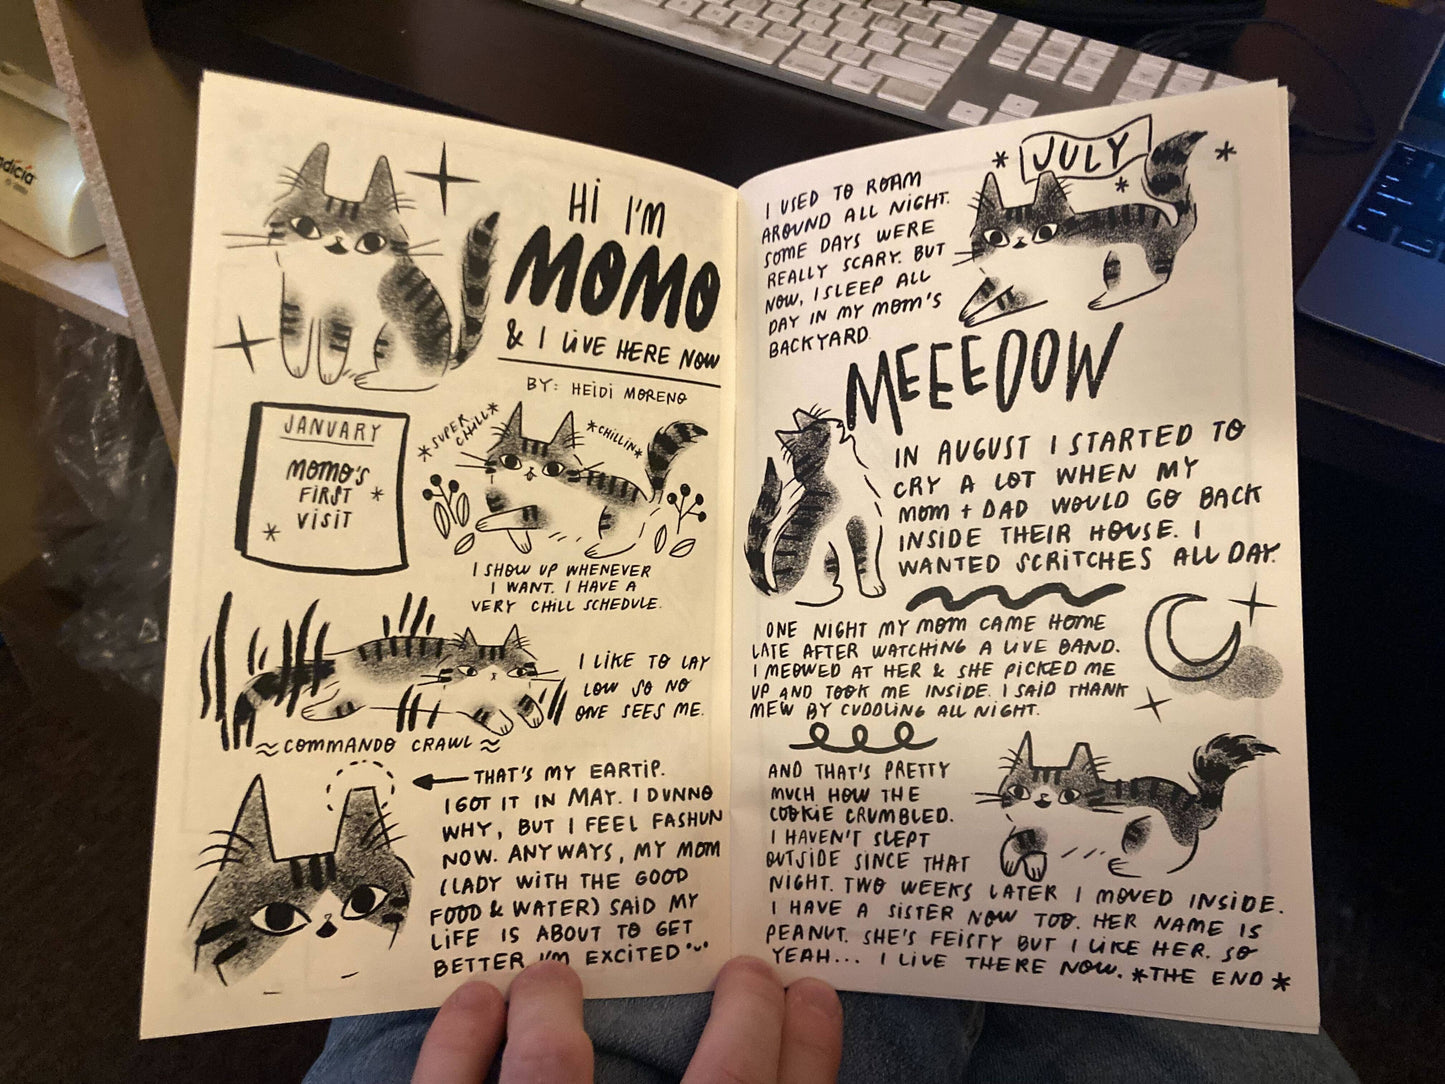 HI I'M
MOMO
& I LIVE HERE NOW
BY: HEIDI MORENO
JANUARY
MOMO'S
FIRST
VISIT
*SUPER
CHILL*
*CHILLIN*
I SHOW UP WHENEVER
I WANT. I HAVE A
VERY CHILL SCHEDULE.
I LIKE TO LAY
LOW SO NO
ONE SEES ME.
≈COMMANDO CRAWL≈
THAT'S MY EARTIP.
I GOT IT IN MAY. I DUNNO
WHY, BUT I FEEL FASHUN
NOW. ANYWAYS, MY MOM
(LADY WITH THE GOOD
FOOD & WATER) SAID MY
LIFE IS ABOUT TO GET
BETTER I'M EXCITED
JULY
I USED TO ROAM
AROUND ALL NIGHT.
SOME DAYS WERE
REALLY SCARY. BUT
NOW, I SLEEP ALL
DAY IN MY MOM'S
BACKYARD.
MEEEOOW
IN AUGUST I STARTED TO
CRY A LOT WHEN MY
MOM + DAD WOULD GO BACK
INSIDE THEIR HOUSE. I
WANTED SCRITCHES ALL DAY.
ONE NIGHT MY MOM CAME HOME
LATE AFTER WATCHING A LIVE BAND.
I MEOWED AT HER & SHE PICKED ME
UP AND TOOK ME INSIDE. I SAID THANK
MEW BY CUDDLING ALL NIGHT.
AND THAT'S PRETTY
MUCH HOW THE
COOKIE CRUMBLED.
I HAVEN'T SLEPT
OUTSIDE SINCE THAT
NIGHT. TWO WEEKS LATER I MOVED INSIDE.
I HAVE A SISTER NOW TOO. HER NAME IS
PEANUT. SHE'S FEISTY BUT I LIKE HER. SO
YEAH... I LIVE THERE NOW. *THE END*